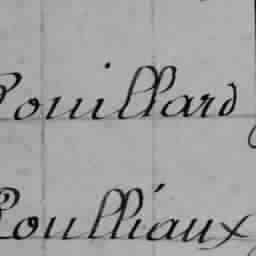 Rouillard
Roulliaux